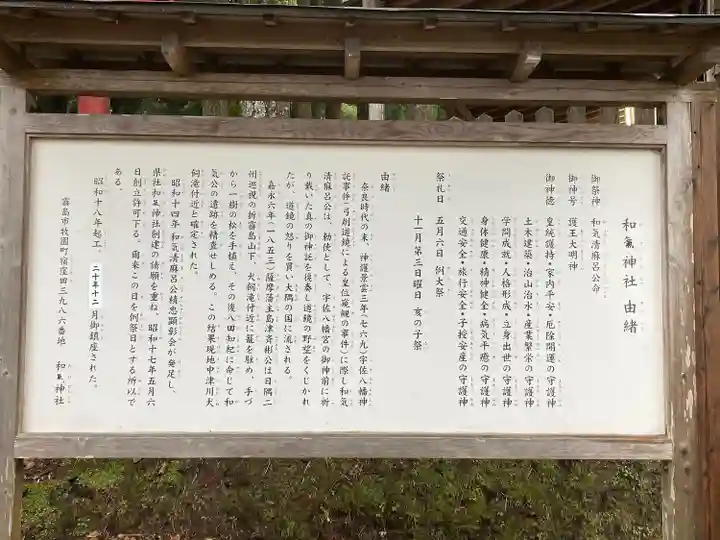 和氣神社 由緒
御祭神 和気清麻呂公命
御神号 護王大明神
御神徳 皇統護持・家内平安・厄除開運の守護神
土木建築・治山治水・産業繁栄の守護神
学問成就・人格形成・立身出世の守護神
身体健康・精神健全・病気平癒の守護神
交通安全・旅行安全・子授安産の守護神
祭礼日 五月六日 例大祭
十一月第三日曜日 亥の子祭
由緒
奈良時代の末、神護景雲三年(七六九)宇佐八幡神
託事件(弓削道鏡による皇位窺覦の事件)に際し和気
清麻呂公は、勅使として、宇佐八幡宮の御神前に祈
り戴いた真の御神託を復奏し道鏡の野望をくじかれ
たが、道鏡の怒りを買い大隅の国に流される。
嘉永六年(一八五三)薩摩藩主島津斉彬公は日隅二
州巡視の折霧島山下、犬飼滝付近に駕を駐め、手づ
から一樹の松を手植え、その後八田知紀に命じて和
気公の遺跡を精査せしめる。この結果現地中津川犬
飼滝付近と確定された。
昭和十四年和気清麻呂公精忠顕彰会が発足し、
県社和氣神社創建の請願を重ね、昭和十七年五月六
日創立許可下る。爾来この日を例祭日とする所以で
ある。
昭和十八年起工、二十年十二月御鎮座された。
霧島市牧園町宿窪田三九八六番地 和氣神社